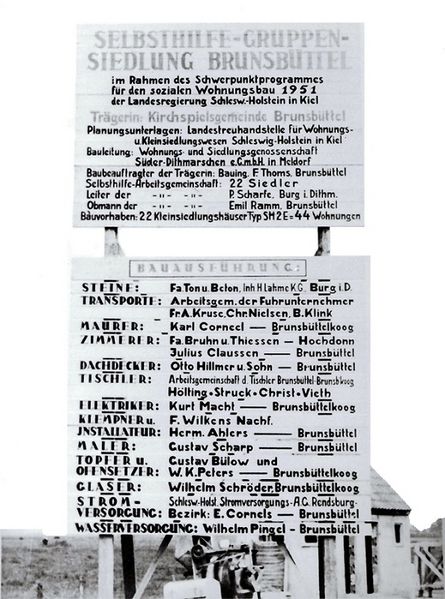 SELBSTHILFE-GRUPPEN-
SIEDLUNG BRUNSBÜTTEL
im Rahmen des Schwerpunktprogrammes
für den sozialen Wohnungsbau 1951
der Landesregierung Schlesw.-Holstein in Kiel
Trägerin: Kirchspielsgemeinde Brunsbüttel
Planungsunterlagen: Landestreuhandstelle für Wohnungs-
u.Kleinsiedlungswesen Schleswig-Holstein in Kiel
Bauleitung: Wohnungs- und Siedlungsgenossenschaft
Süder-Dithmarschen e.G.m.b.H. in Meldorf
Baubeauftragter der Trägerin: Bauing. F. Thoms. Brunsbüttel
Selbsthilfe-Arbeitsgemeinschaft: 22 Siedler
Leiter der -„- -„- P. Scharfe, Burg i. Dithm.
Obmann der -„- -„- Emil Ramm. Brunsbüttel
Bauvorhaben: 22 Kleinsiedlungshäuser Typ SM 2 E = 44 Wohnungen
BAUAUSFÜHRUNG:
STEINE: Fa. Ton u. Beton, Inh. H. Lahme K.G. Burg i. D.
TRANSPORTE: Arbeitsgem. der Fuhrunternehmer
Fr. A. Kruse, Chr. Nielsen, B. Klink
MAURER: Karl Corneel — Brunsbüttelkoog
ZIMMERER: Fa. Bruhn u. Thiessen — Hochdonn
Julius Claussen — Brunsbüttel
DACHDECKER: Otto Hillmer u. Sohn — Brunsbüttel
TISCHLER: Arbeitsgemeinschaft d. Tischler Brunsbüttel-Brunsb'koog
Hölting • Struck • Christ • Vieth
ELEKTRIKER: Kurt Macht — Brunsbüttelkoog
KLEMPNER u. F. Wilkens Nachf.
INSTALLATEUR: Herm. Ahlers — Brunsbüttel
MALER: Gustav Scharp — Brunsbüttel
TÖPFER u. Gustav Bülow und
OFENSETZER: W. K. Peters — Brunsbüttelkoog
GLASER: Wilhelm Schröder, Brunsbüttelkoog
STROM- Schlesw.-Holst. Stromversorgungs-A.G. Rendsburg-
VERSORGUNG: Bezirk: E. Cornels — Brunsbüttel
WASSERVERSORGUNG: Wilhelm Pingel - Brunsbüttel